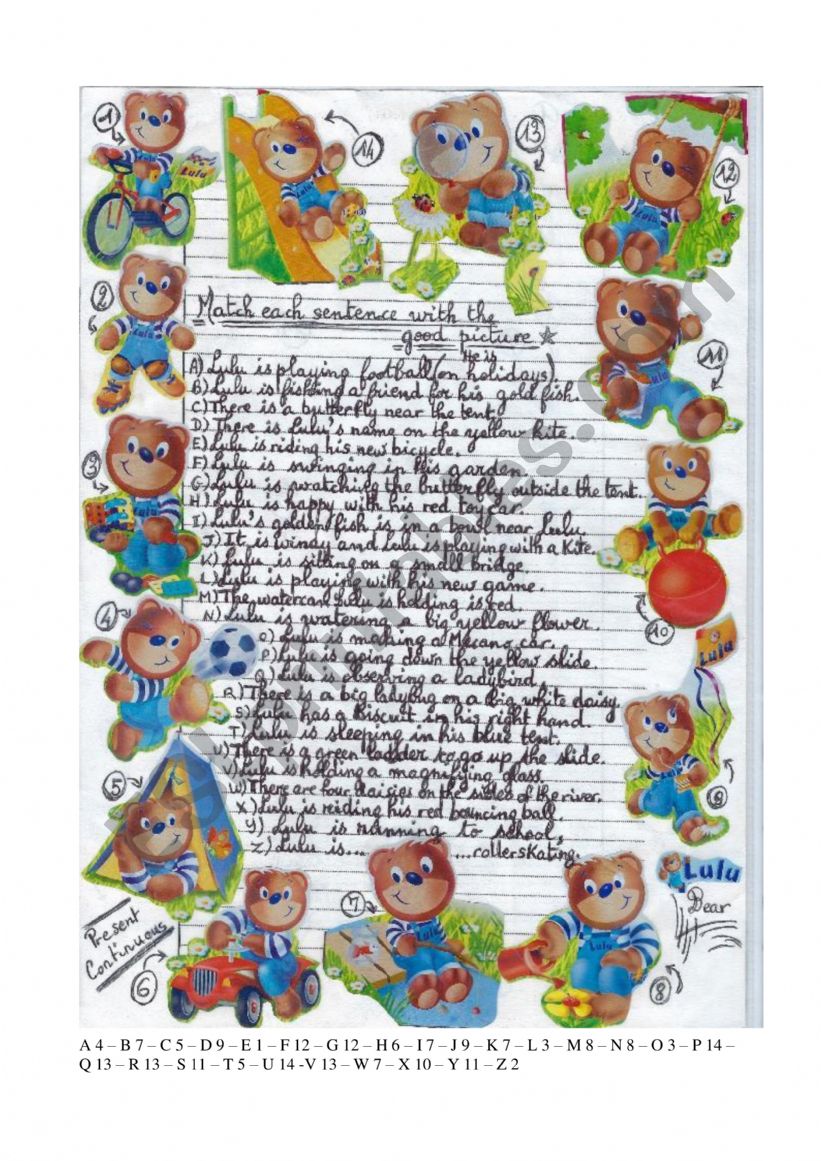 1
14
13
12
Lulu
Lulu
Lulu
2
Match each sentence with the
good picture
He is
A) Lulu is playing football (on holidays)
B) Lulu is fishing a friend for his gold fish.
C) There is a butterfly near the tent.
D) There is Lulu's name on the yellow kite.
E) Lulu is riding his new bicycle.
F) Lulu is swinging in his garden.
G) Lulu is watching the butterfly outside the tent.
H) Lulu is happy with his red toy car.
I) Lulu's golden fish is in a bowl near Lulu.
J) It is windy and Lulu is playing with a Kite.
K) Lulu is sitting on a small bridge.
L) Lulu is playing with his new game.
M) The watercan Lulu is holding is red.
N) Lulu is watering a big yellow flower.
O) Lulu is making a Mecano car.
P) Lulu is going down the yellow slide.
Q) Lulu is observing a ladybird
R) There is a big ladybug on a big white daisy.
S) Lulu has a Biscuit in his right hand.
T) Lulu is sleeping in his blue tent.
U) There is a green ladder to go up the slide.
V) Lulu is holding a magnifying glass.
W) There are four daisies on the sides of the river.
X) Lulu is riding his red bouncing ball.
Y) Lulu is running to school.
Z) Lulu is... ...rollerskating.
11
3
10
4
Lulu
5
9
Lulu
Dear
Present
Continuous
6
7
8
Lulu
A 4 – B 7 – C 5 – D 9 – E 1 – F 12 – G 12 – H 6 – I 7 – J 9 – K 7 – L 3 – M 8 – N 8 – O 3 – P 14 –
Q 13 – R 13 – S 11 – T 5 – U 14 -V 13 – W 7 – X 10 – Y 11 – Z 2